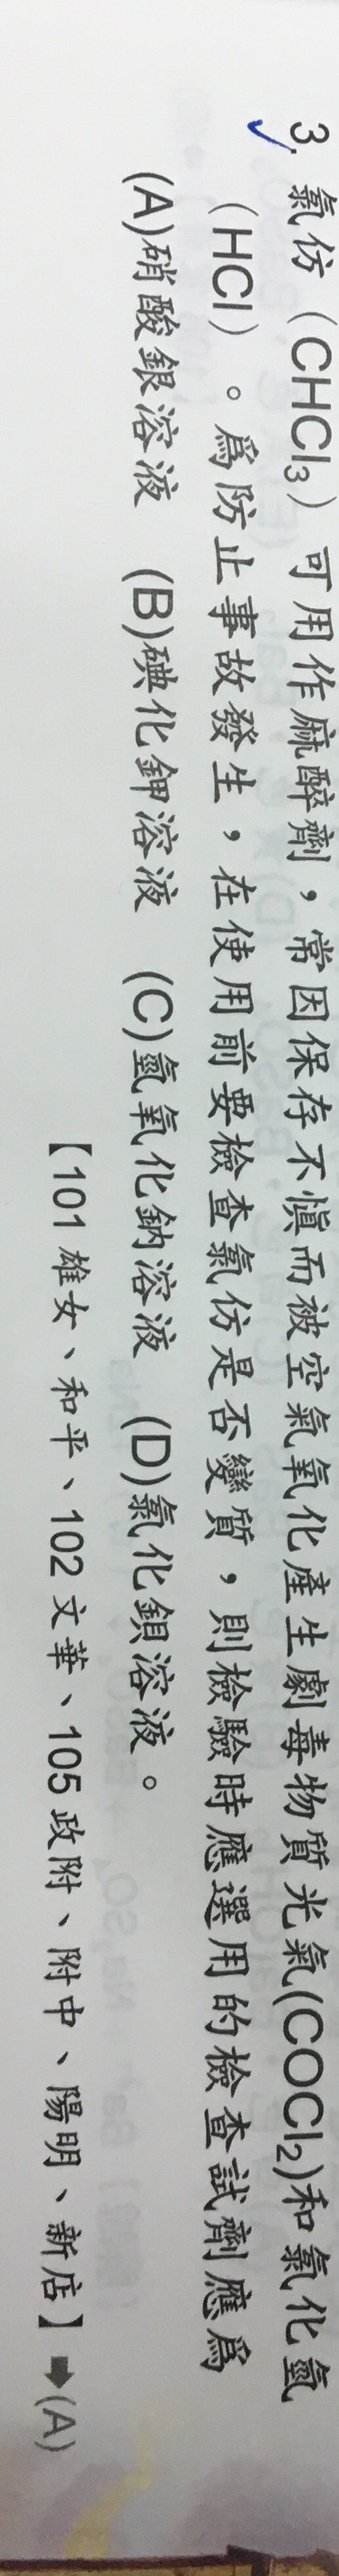 3. 氯仿（CHCl₃）可用作麻醉劑，常因保存不慎而被空氣氧化產生劇毒物質光氣(COCl₂)和氯化氫
（HCl）。為防止事故發生，在使用前要檢查氯仿是否變質，則檢驗時應選用的檢查試劑應為
(A)硝酸銀溶液　(B)碘化鉀溶液　(C)氫氧化鈉溶液　(D)氯化鋇溶液。
【101 雄女、和平、102 文華、105 政附、附中、陽明、新店】➡(A)